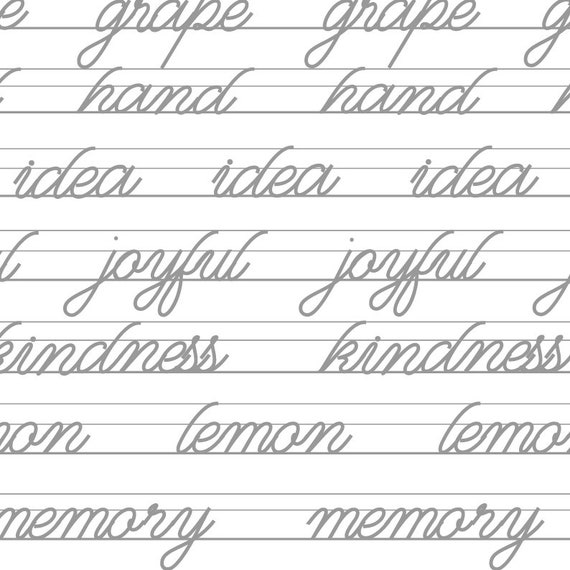 grape grape
hand hand
idea idea idea
joyful joyful
kindness kindness
lemon lemon
memory memory